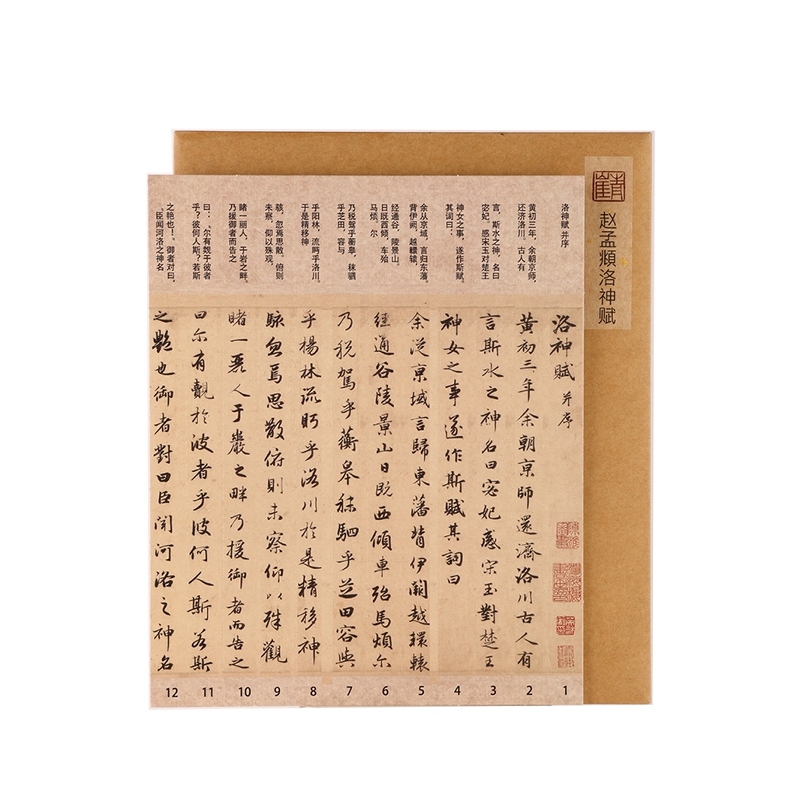 赵孟頫洛神赋
洛神赋 并序
黄初三年，余朝京师，
还济洛川。古人有
言，斯水之神，名曰
宓妃。感宋玉对楚王
神女之事，遂作斯赋。
其词曰：
余从京域，言归东藩，
背伊阙，越轘辕，
经通谷，陵景山。
日既西倾，车殆
马烦。尔
乃税驾乎蘅皋，秣驷
乎芝田，容与
乎阳林，流眄乎洛川。
于是精移神
骇，忽焉思散。俯则
未察，仰以殊观。
睹一丽人，于岩之畔。
乃援御者而告之
曰：“尔有觌于彼者
乎？彼何人斯？若斯
之艳也！”御者对曰：
“臣闻河洛之神名
洛神賦 并序
黃初三年余朝京師還濟洛川古人有
言斯水之神名曰宓妃感宋玉對楚王
神女之事遂作斯賦其詞曰
余從京域言歸東藩背伊闕越轘轅
經通谷陵景山日既西傾車殆馬煩尔
乃税駕乎蘅皋秣駟乎芝田容與
乎楊林流眄乎洛川於是精移神
駭忽焉思散俯則未察仰以殊觀
睹一麗人于巖之畔乃援御者而告之
曰尔有覿於彼者乎彼何人斯若斯
之艷也御者對曰臣聞河洛之神名
1
2
3
4
5
6
7
8
9
10
11
12